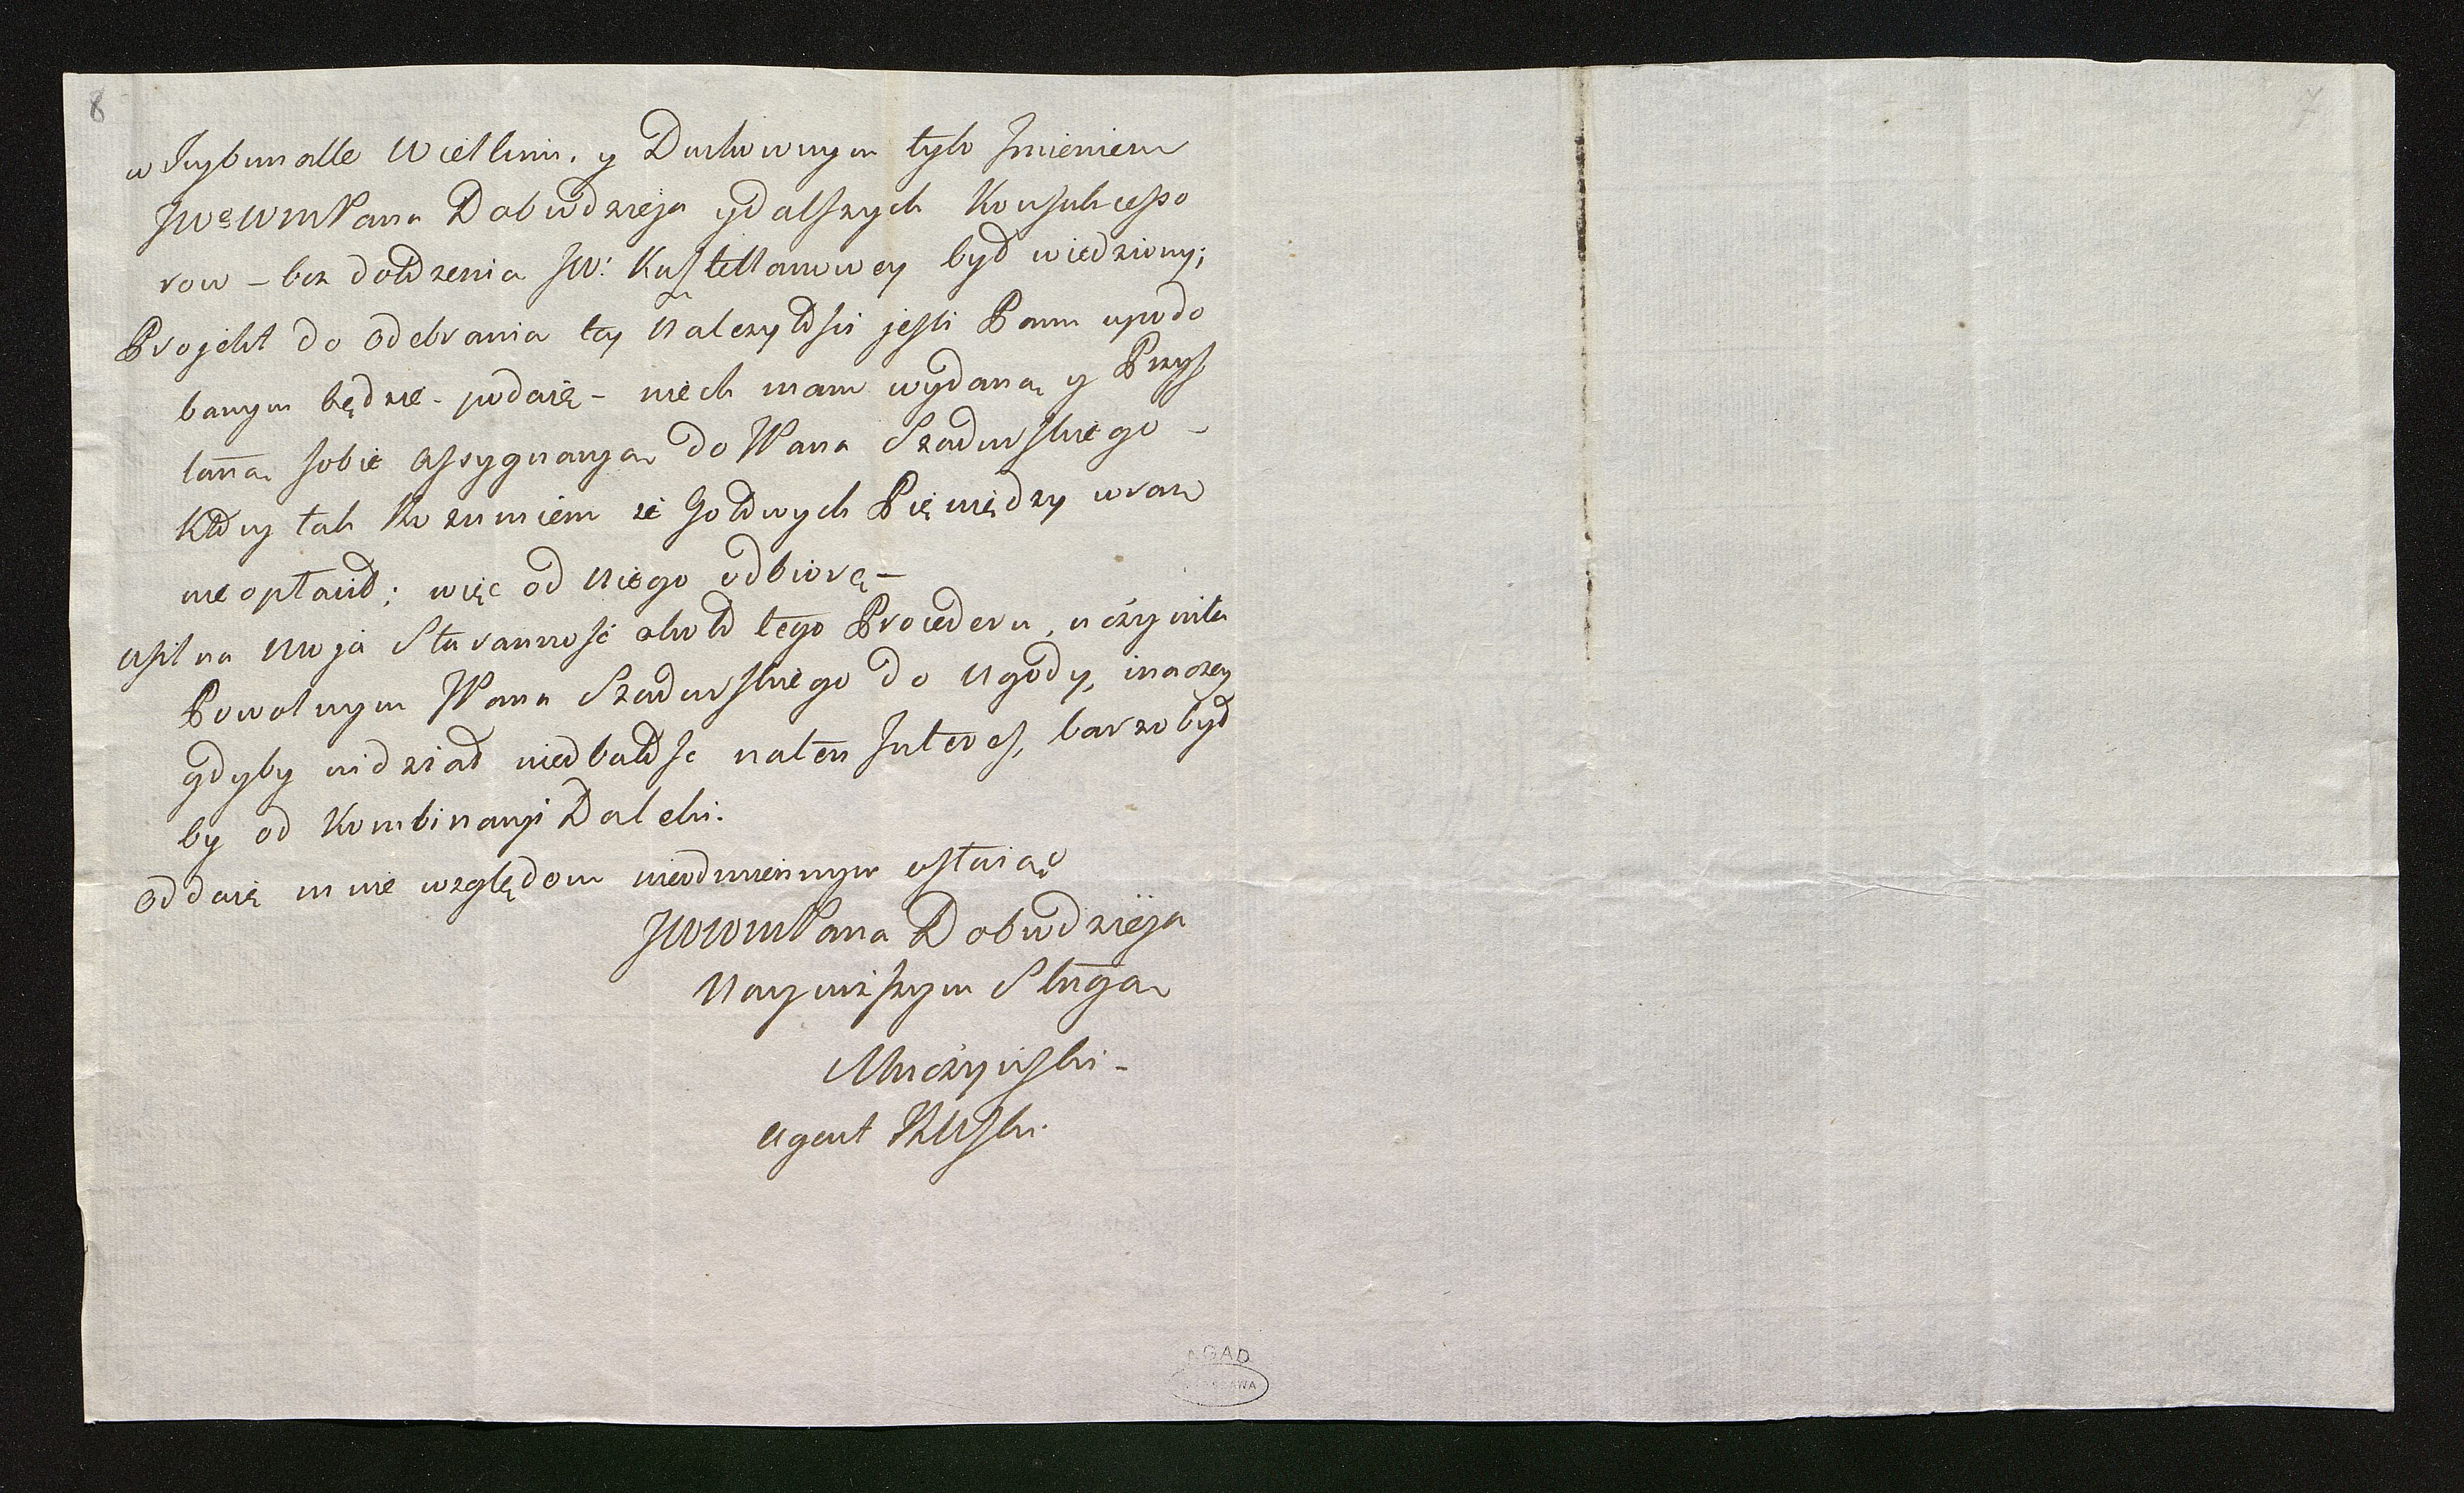 8
w Trybunalle Wielkim, y Duchownym tylo Jmieniem
JWo WMPana Dobrodzieja y dalszych Konsukcesso
row – bez dołożenia JW: Kasztellanowey był wiedziony;
Projekt do odebrania tey Należytości jeśli Panu upodo
banym będzie – podaię – niech mam wydaną y Przys
łaną sobie assygnacyą do WPana Szadurskiego –
Ktory tak Rozumiem że Gotowych Pieniędzy wraz
nie opłacił; więc od Niego odbiorę –
Usilna Moja Staranność około tego Procederu, uczyniła
Powolnym WPana Szadurskiego do Ugody, inaczey
gdyby widział niedbałość na ten Jnteres, barzo był
by od Kombinacyi Daleki.
Oddaię mnie względom nieodmiennym zostaiąc
JWWMPana Dobrodzieja
Nayniższym Sługą
Muczyński –
Agent
AGAD
WARSZAWA